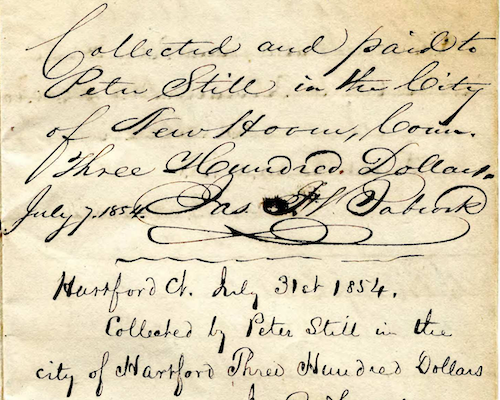 Collected and paid to
Peter Still in the City
of New Haven, Conn.
Three Hundred Dollars.
July 7. 1854. Jas. F. Babcock
Hartford Ct. July 31st 1854.
Collected by Peter Still in the
city of Hartford Three Hundred Dollars